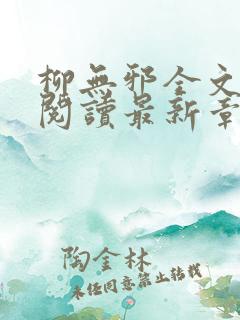 柳無邪全文
閱讀最新章
陶金林
未经同意禁止转载